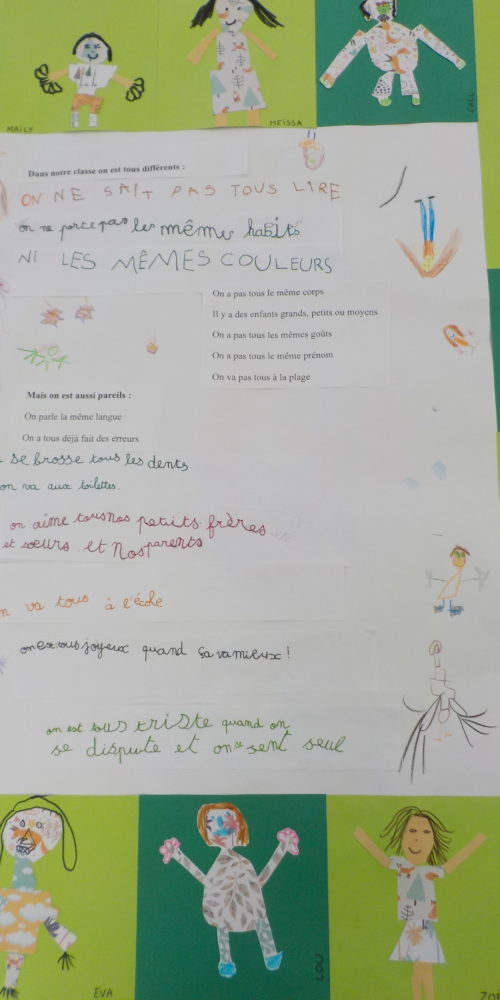 MAILY
MEÏSSA
Dans notre classe on est tous différents :
ON NE SAIT PAS TOUS LIRE
on ne porte pas les mêmes habits
NI LES MÊMES COULEURS
On a pas tous le même corps
Il y a des enfants grands, petits ou moyens
On a pas tous les mêmes goûts
On a pas tous le même prénom
On va pas tous à la plage
Mais on est aussi pareils :
On parle la même langue
On a tous déjà fait des erreurs
se brosse tous les dents
on va aux toilettes.
on aime tous nos petits frères
et sœurs et Nos parents
va tous à l'école
on est tous joyeux quand ça va mieux !
on est tous triste quand on
se dispute et on se sent seul
EVA
LOU